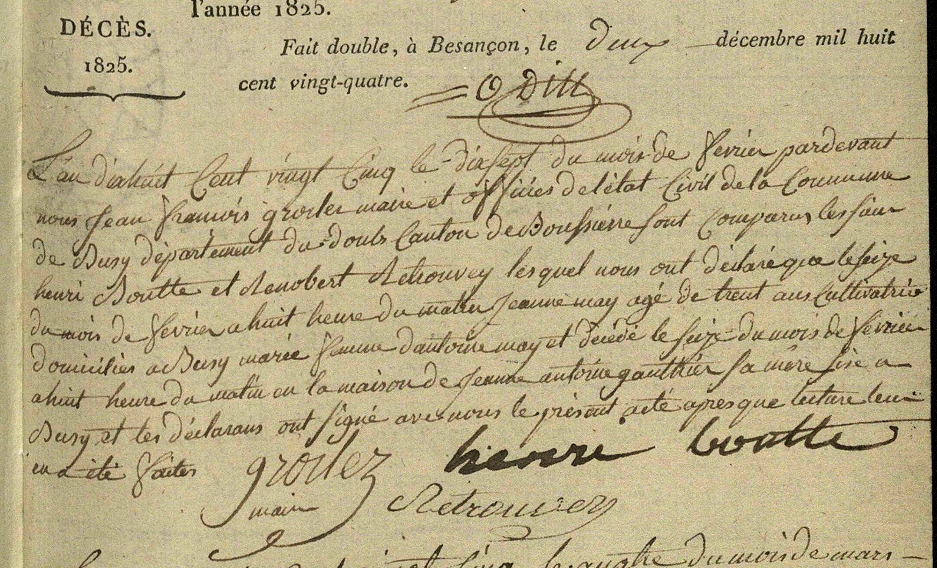 l'année 1825.
DÉCÈS.
1825.
Fait double, à Besançon, le deux décembre mil huit
cent vingt-quatre.
L'an dixhuit Cent vingt Cinq le dixsept du mois de fevrier pardevant
nous jean francois groslez maire et officiés de létat Civil de la Commune
de Busy département du doubs Canton de Boussierre sont Comparus les sieur
henri Boutte et Renobert Retrouvey lesquel nous ont déclaré que le seize
du mois de fevrier a huit heure du matin jeanne may agé de trent ans Cultivatrice
domiciliés a Busy mariée femme d'antoine may et décédé le seize du mois de fevrier
a huit heure du matin en la maison de jeanne antoine gauthier sa mère sise a
Busy et les déclarans ont signé avec nous le présent acte apres que lecture leur
en a été faites groslez henri boutte
maire Retrouvey
du mois de mars